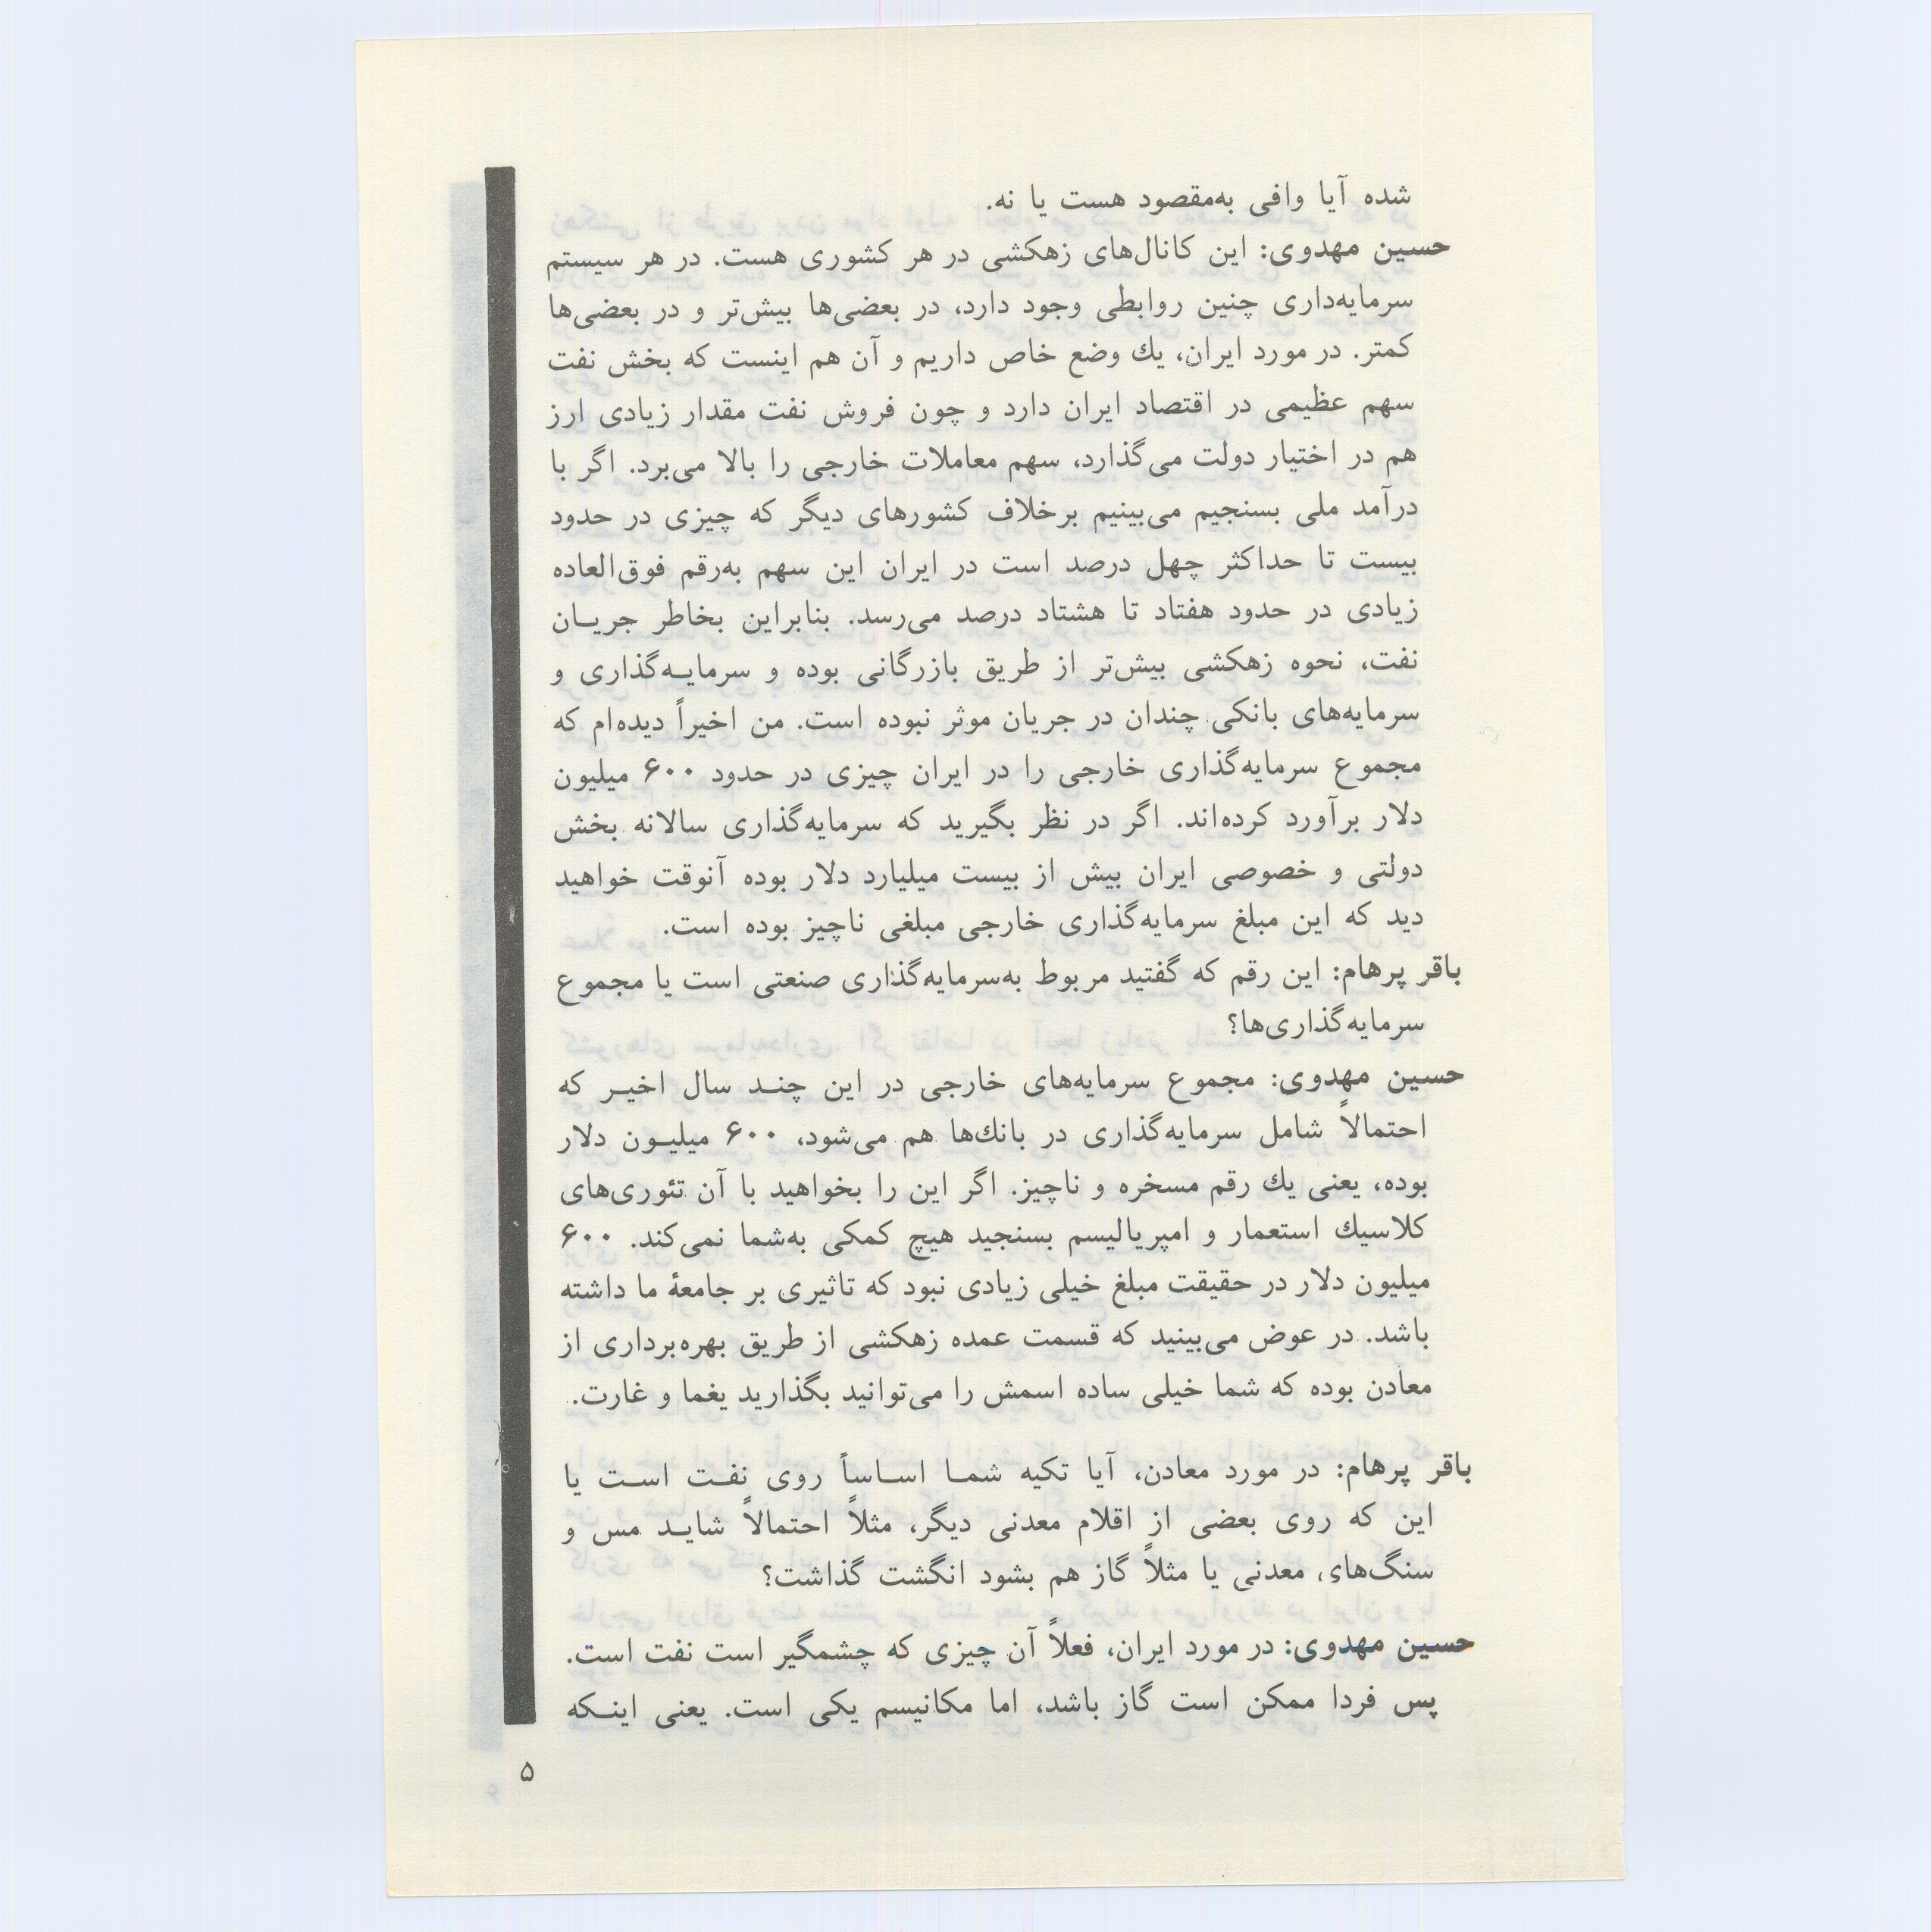 شده آیا وافی به‌مقصود هست یا نه.
حسین مهدوی: این کانال‌های زهکشی در هر کشوری هست. در هر سیستم
سرمایه‌داری چنین روابطی وجود دارد، در بعضی‌ها بیش‌تر و در بعضی‌ها
کمتر. در مورد ایران، یك وضع خاص داریم و آن هم اینست که بخش نفت
سهم عظیمی در اقتصاد ایران دارد و چون فروش نفت مقدار زیادی ارز
هم در اختیار دولت می‌گذارد، سهم معاملات خارجی را بالا می‌برد. اگر با
درآمد ملی بسنجیم می‌بینیم برخلاف کشورهای دیگر که چیزی در حدود
بیست تا حداکثر چهل درصد است در ایران این سهم به‌رقم فوق‌العاده
زیادی در حدود هفتاد تا هشتاد درصد می‌رسد. بنابراین بخاطر جریــان
نفت، نحوه زهکشی بیش‌تر از طریق بازرگانی بوده و سرمایــه‌گذاری و
سرمایه‌های بانکی چندان در جریان موثر نبوده است. من اخیراً دیده‌ام که
مجموع سرمایه‌گذاری خارجی را در ایران چیزی در حدود ۶۰۰ میلیون
دلار برآورد کرده‌اند. اگر در نظر بگیرید که سرمایه‌گذاری سالانه بخش
دولتی و خصوصی ایران بیش از بیست میلیارد دلار بوده آنوقت خواهید
دید که این مبلغ سرمایه‌گذاری خارجی مبلغی ناچیز بوده است.
باقر پرهام: این رقم که گفتید مربوط به‌سرمایه‌گذاری صنعتی است یا مجموع
سرمایه‌گذاری‌ها؟
حسین مهدوی: مجموع سرمایه‌های خارجی در این چنــد سال اخیــر که
احتمالاً شامل سرمایه‌گذاری در بانك‌ها هم می‌شود، ۶۰۰ میلیــون دلار
بوده، یعنی یك رقم مسخره و ناچیز. اگر این را بخواهید با آن تئوری‌های
کلاسیك استعمار و امپریالیسم بسنجید هیچ کمکی به‌شما نمی‌کند. ۶۰۰
میلیون دلار در حقیقت مبلغ خیلی زیادی نبود که تاثیری بر جامعهٔ ما داشته
باشد. در عوض می‌بینید که قسمت عمده زهکشی از طریق بهره‌برداری از
معادن بوده که شما خیلی ساده اسمش را می‌توانید بگذارید یغما و غارت.
باقر پرهام: در مورد معادن، آیا تکیه شمــا اســاساً روی نفــت اســت یا
این که روی بعضی از اقلام معدنی دیگر، مثلاً احتمالاً شایــد مس و
سنگ‌های معدنی یا مثلاً گاز هم بشود انگشت گذاشت؟
حسین مهدوی: در مورد ایران، فعلاً آن چیزی که چشمگیر است نفت است.
پس فردا ممکن است گاز باشد، اما مکانیسم یکی است. یعنی اینــکه
۵